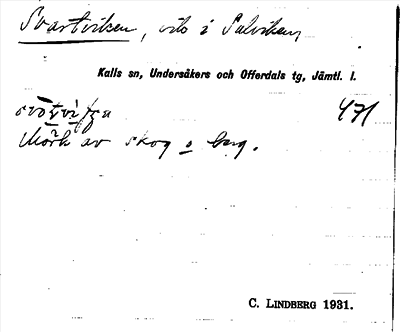 Svartviken, vik i Salviken
Kalls sn, Undersåkers och Offerdals tg, Jämtl. l.
471
Mörk av skog o berg.
C. LINDBERG 1931.